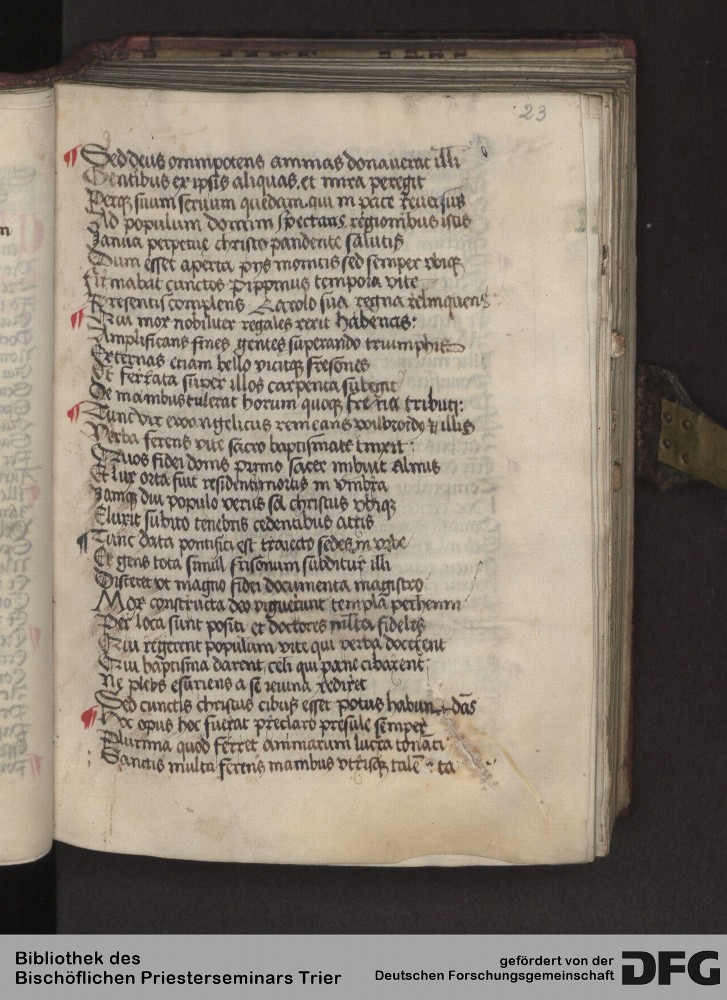 23
Sed deus omnipotens animas donauerat illi
Gentibus ex ipsis aliquas, et mira peregit
Perque suum seruum quedam, qui in pace reuersus
Ad populum domini spectans regionibus istis
Ianua perpetue christo pandente salutis
Dum esset aperta pijs monitis sed semper vbique
Firmabat cunctos Pippinus tempora vite
Presentis complens Carolo sua regna relinquens
Qui mox nobiliter regales rexit habenas:
Amplificans fines gentes superando triumphis
Externas etiam bello vicitque fresones
Et ferrata super illos carpenta subegit
De manibus tulerat horum quoque frena tributi:
Tunc vir ewangelicus remeans wilbrordus et illis
Verba ferens vite sacro baptismate tinxit:
Quos fidei donis primo sacer inbuit almus
Et lux orta fuit residenti mortis in vmbra
Iamque diu populo verus sol christus vbique
Eluxit subito tenebris cedentibus atris
Tunc data pontifici est traiecto sedes in vrbe
Et gens tota simul frisonum subditur illi
Disceret vt magno fidei documenta magistro
Mox constructa deo viguerunt templa perhenni
Per loca sunt positi et doctores multa fideles
Qui regerent populum vite qui verba docerent
Qui baptisma darent, celi qui pane cibarent:
Ne plebs esuriens a se ieiuna rediret
Sed cunctis christus cibus esset potus habundans
Hoc opus hoc fuerat preclaro presule semper
Plurima quod ferret animarum lucra tonanti
Sanctis multa ferens manibus vtrisque talenta
Bibliothek des
Bischöflichen Priesterseminars Trier
gefördert von der
Deutschen Forschungsgemeinschaft
DFG